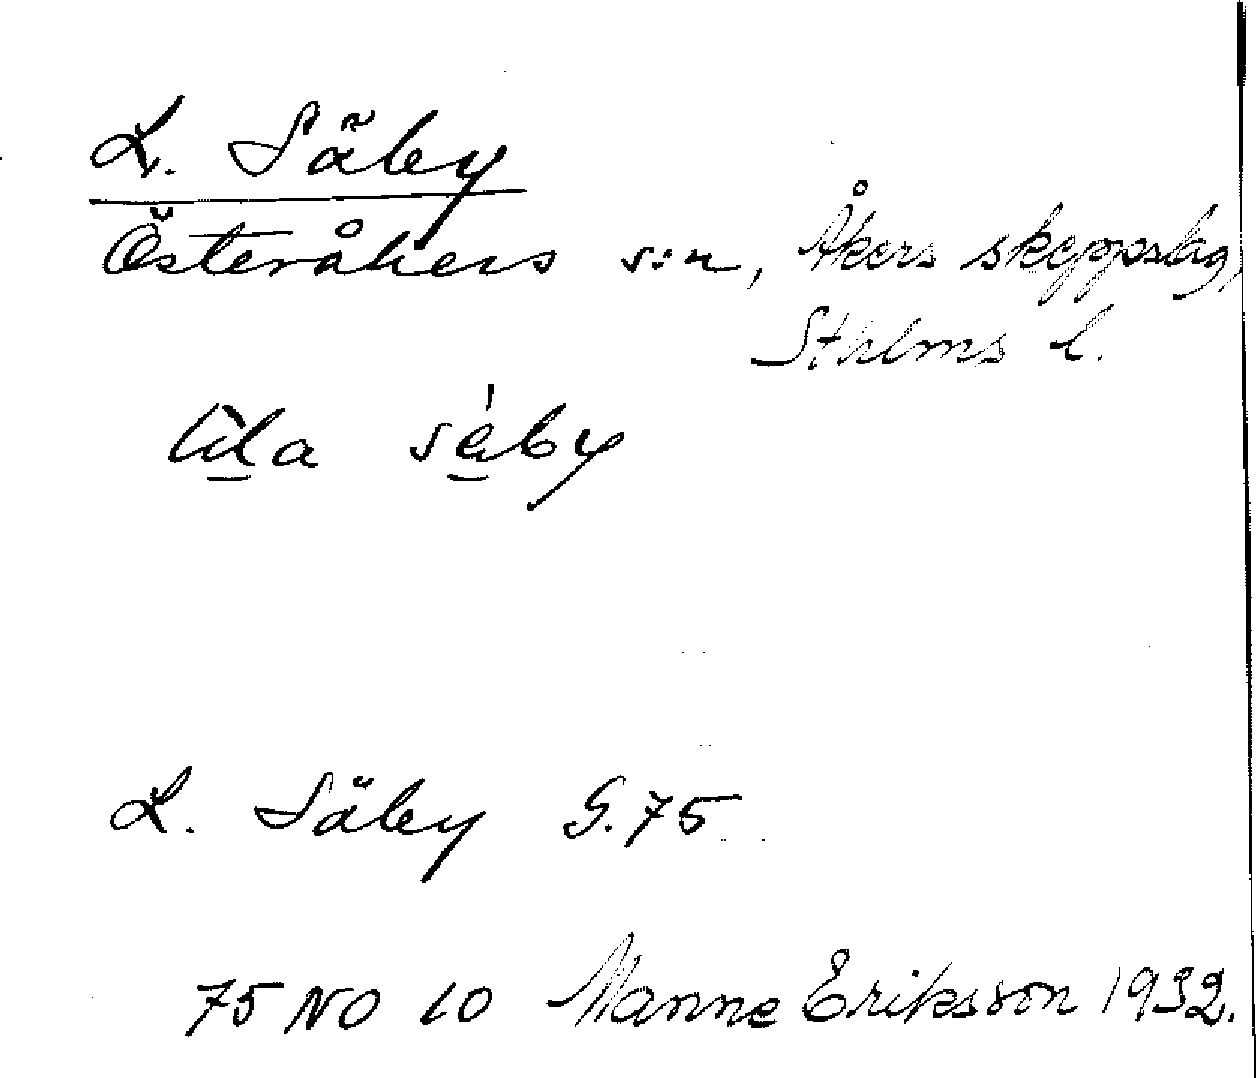 L. Säby
Österåkers s:n, Åkers skeppslag,
Sthlms l.
lìla sáby
L. Säby G.75
75 NO 10 Manne Eriksson 1932.